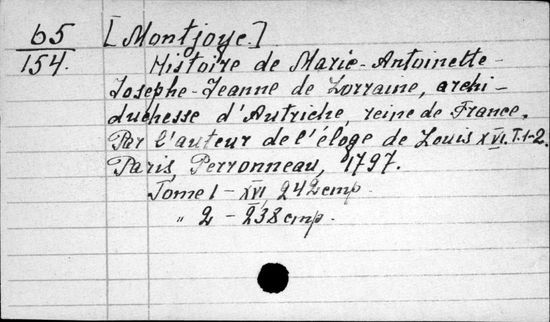 65 [Montjoye.]
154. Histoire de Marie-Antoinette-
Josephe-Jeanne de Lorraine, archi-
duchesse d'Autriche, reine de France.
Par l'auteur de l'éloge de Louis XVI. T.1-2.
Paris, Perronneau, 1797.
Tome 1 - XVI, 242 cmp.
" 2 - 238 cmp.